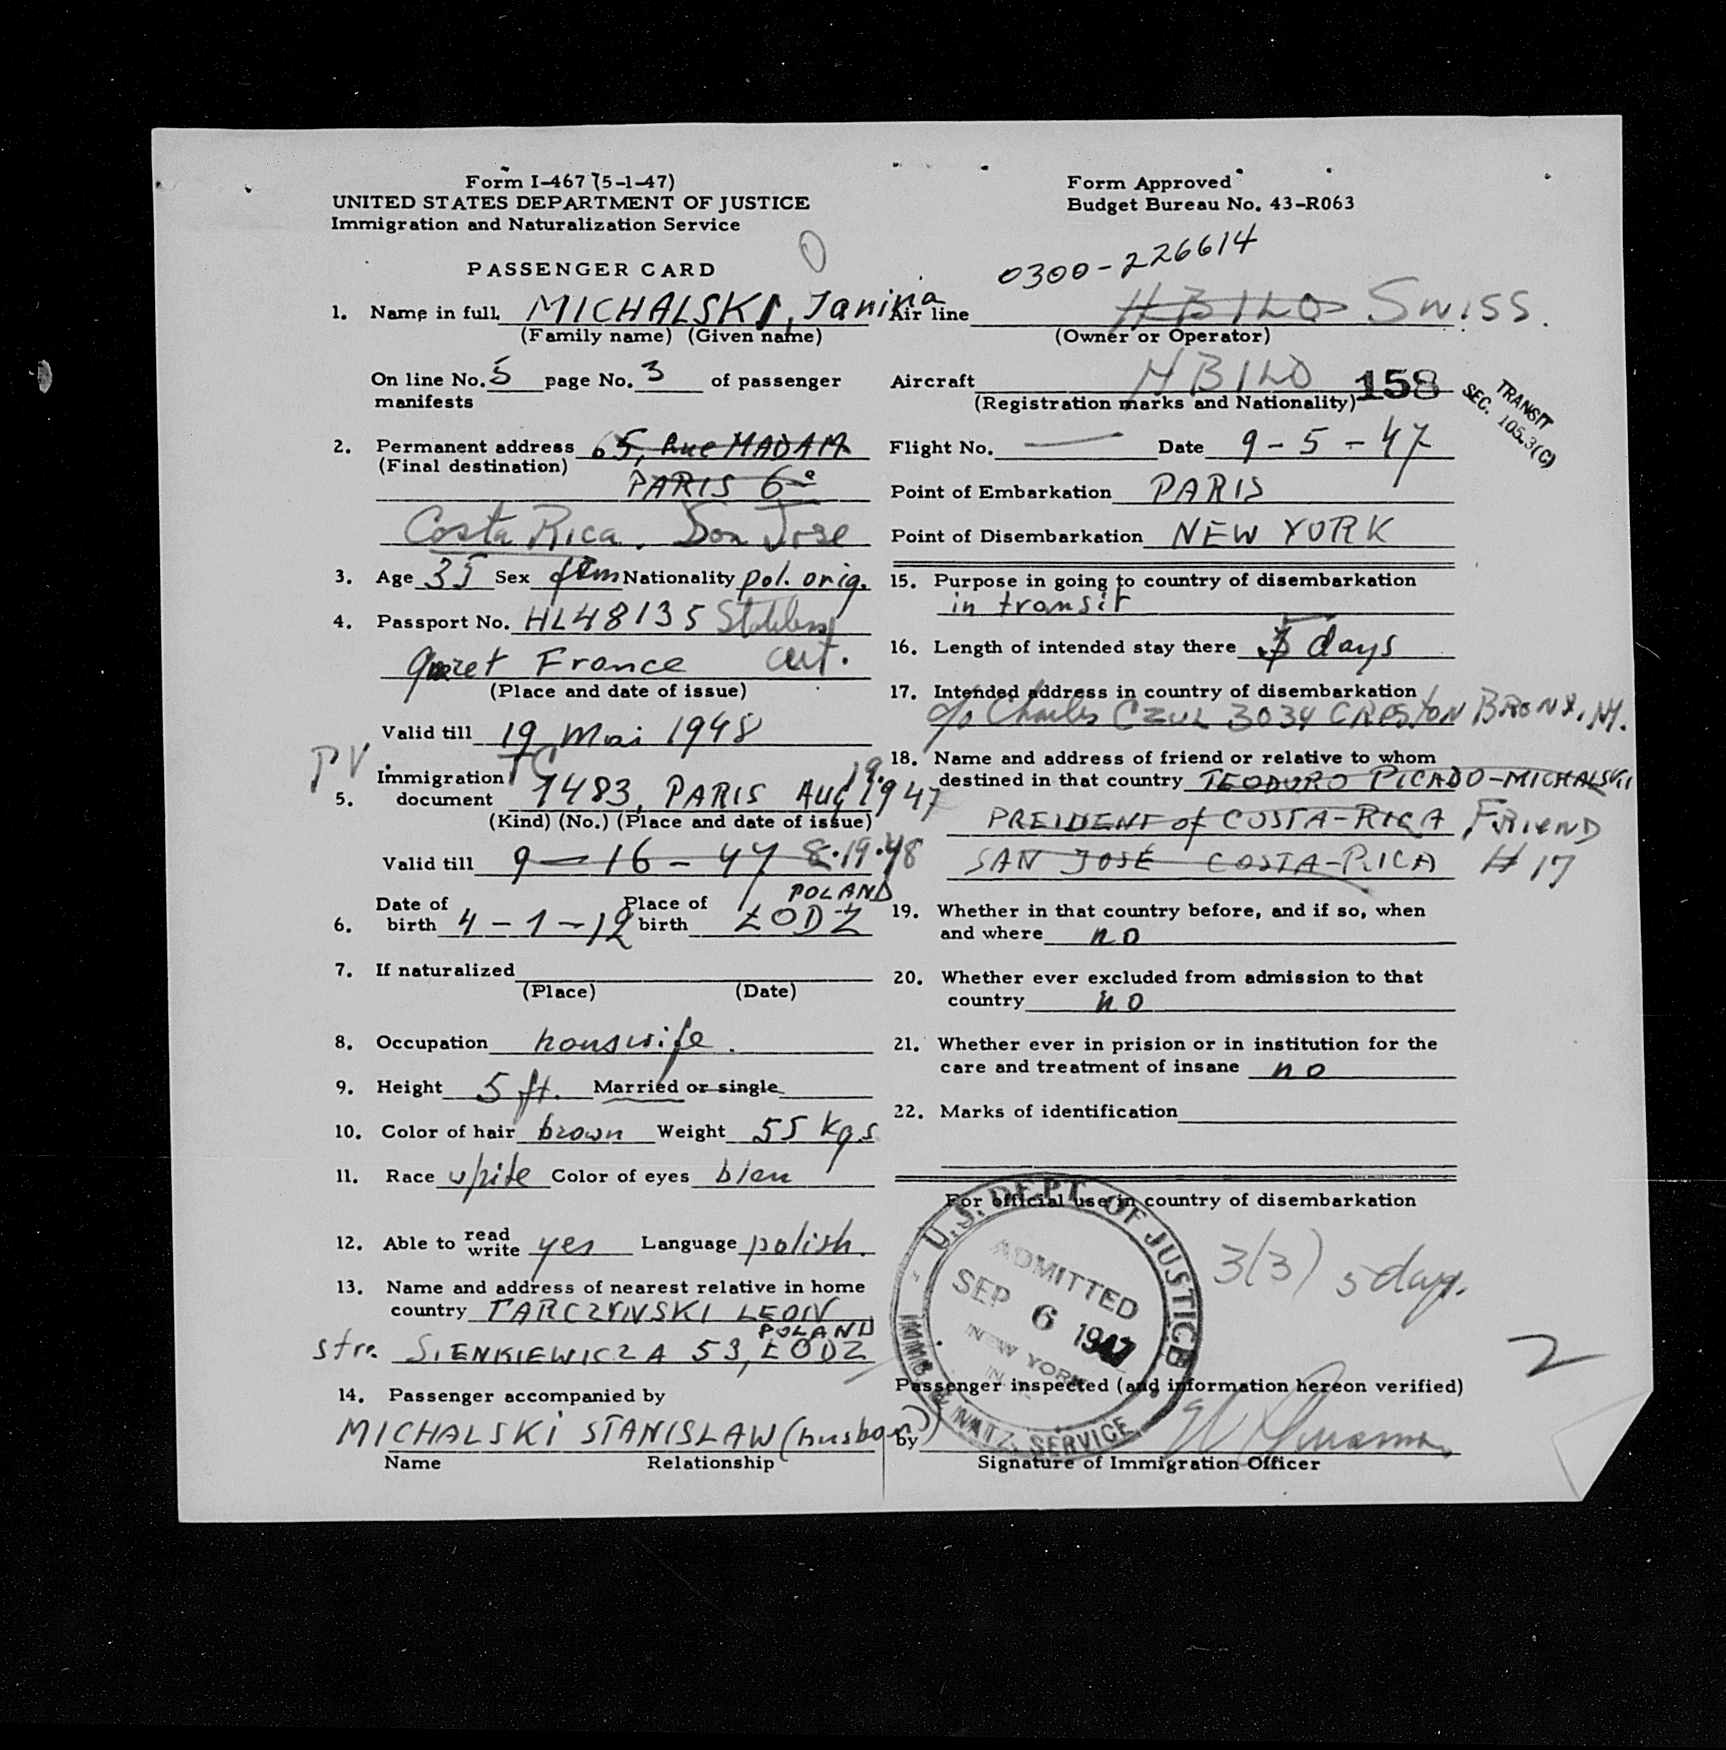 Form I-467 (5-1-47)
UNITED STATES DEPARTMENT OF JUSTICE
Immigration and Naturalization Service
PASSENGER CARD
1. Name in full MICHALSKI, Janina
(Family name) (Given name)
On line No. 5 page No. 3 of passenger
manifests
2. Permanent address 65, Rue MADAM
(Final destination)
PARIS 6e
Costa Rica. San Jose
3. Age 35 Sex fem Nationality pol. orig.
4. Passport No. HL48135 Stateless
France cert.
(Place and date of issue)
Valid till 19 Mai 1948
PV. TC 19.
Immigration
5. document 1483, PARIS Aug 1947
(Kind) (No.) (Place and date of issue)
Valid till 9-16-47 8.19.48
POLAND
Date of Place of
6. birth 4-1-12 birth ŁODZ
7. If naturalized
(Place) (Date)
8. Occupation houswife.
9. Height 5 ft. Married or single
10. Color of hair brown Weight 55 kgs
11. Race white Color of eyes bleu
12. Able to read write yes Language polish.
13. Name and address of nearest relative in home
country TARCZYNSKI LEON
POLAND
str. SIENKIEWICZA 53, ŁODZ
14. Passenger accompanied by
MICHALSKI STANISLAW (husband)
Name Relationship
Form Approved
Budget Bureau No. 43-R063
0300-226614
Air line HBILO Swiss.
(Owner or Operator)
Aircraft HBILO 158
(Registration marks and Nationality)
TRANSIT
SEC. 105.3(C)
Flight No. — Date 9-5-47
Point of Embarkation PARIS
Point of Disembarkation NEW YORK
15. Purpose in going to country of disembarkation
in transit
16. Length of intended stay there 5 days
17. Intended address in country of disembarkation
c/o Charles CZUL 3034 CRESTON BRONX, NY.
18. Name and address of friend or relative to whom
destined in that country TEODORO PICADO-MICHALSKI
PREIDENT of COSTA-RICA FRIEND
SAN JOSÉ COSTA-RICA # 17
19. Whether in that country before, and if so, when
and where no
20. Whether ever excluded from admission to that
country no
21. Whether ever in prision or in institution for the
care and treatment of insane no
22. Marks of identification
For official use in country of disembarkation
U.S. DEPT. OF JUSTICE
ADMITTED
SEP 6 1947
NEW YORK
IMMG. & NATZ. SERVICE
3(3) 5 days.
2
Passenger inspected (and information hereon verified)
by
Signature of Immigration Officer